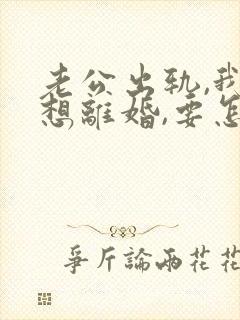 老公出轨,我
想離婚,要怎
爭斤論兩花花